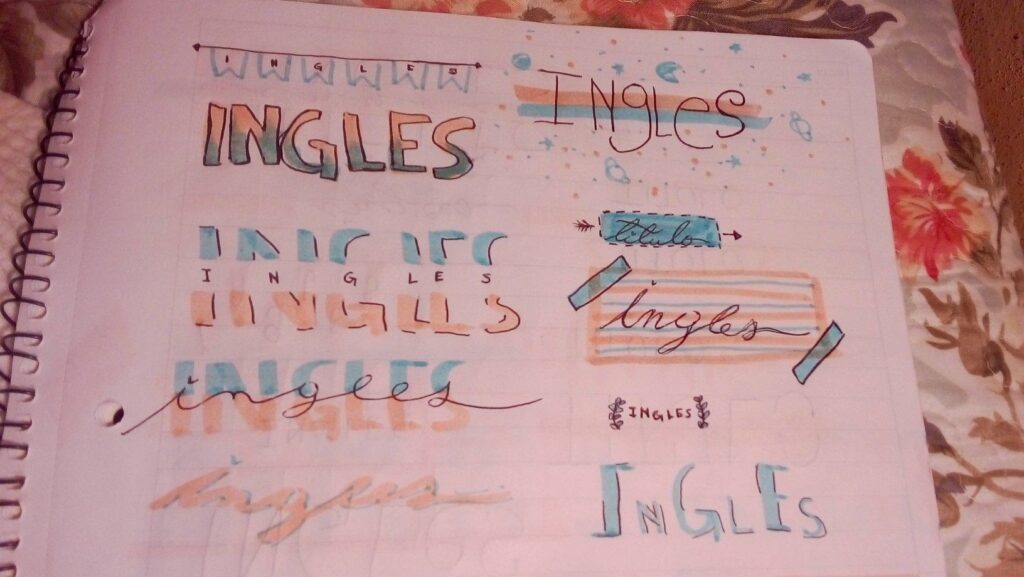 INGLES
INGLES
INGLES
INGLES
INGLES
ingles
ingles
INgles
titulo
ingles
INGLES
INGLES